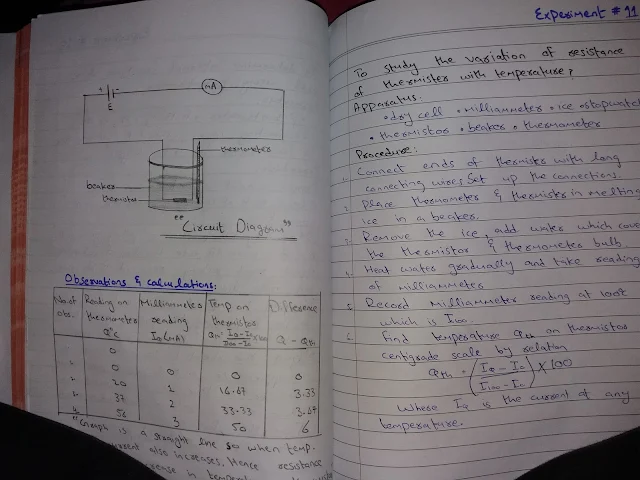 +
E
mA
thermometer
beaker
thermister
"Circuit Diagram"
Observations & calculations:
No. of obs. | Reading on thermometer Q°C | Milliammeter reading IQ (mA) | Temp on thermistor Qth = (IQ - I0 / I100 - I0) x 100 | Difference Q - Qth
0
1 0 0 0 0
2 20 1 16.67 3.33
3 37 2 33.33 3.67
4 56 3 50 6
* Graph is a straight line so when temp.
current also increases. Hence resistance
in
Experiment # 11
To study the variation of resistance
of thermister with temperature?
Apparatus:
• dry cell • milliammeter • ice • stopwatch
• thermistor • beaker • thermometer
Procedure:
1. Connect ends of thermister with long
connecting wires. Set up the connections.
2. Place thermometer & thermister in melting
ice in a beaker.
3. Remove the ice, add water which cove
the thermistor & thermometer bulb
4. Heat water gradually and take reading
of milliammeter
5. Record milliammeter reading at 100°C
which is I100
6. Find temperature Qth on thermistor
centigrade scale by relation
Qth = (IQ - I0 / I100 - I0) x 100
Where IQ is the current of any
temperature.